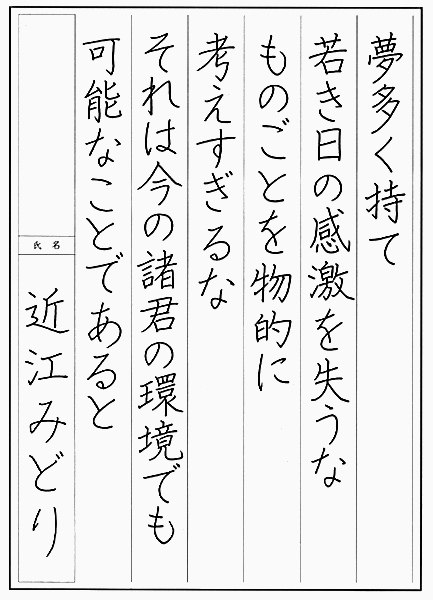 夢多く持て
若き日の感激を失うな
ものごとを物的に
考えすぎるな
それは今の諸君の環境でも
可能なことであると
氏名
近江みどり